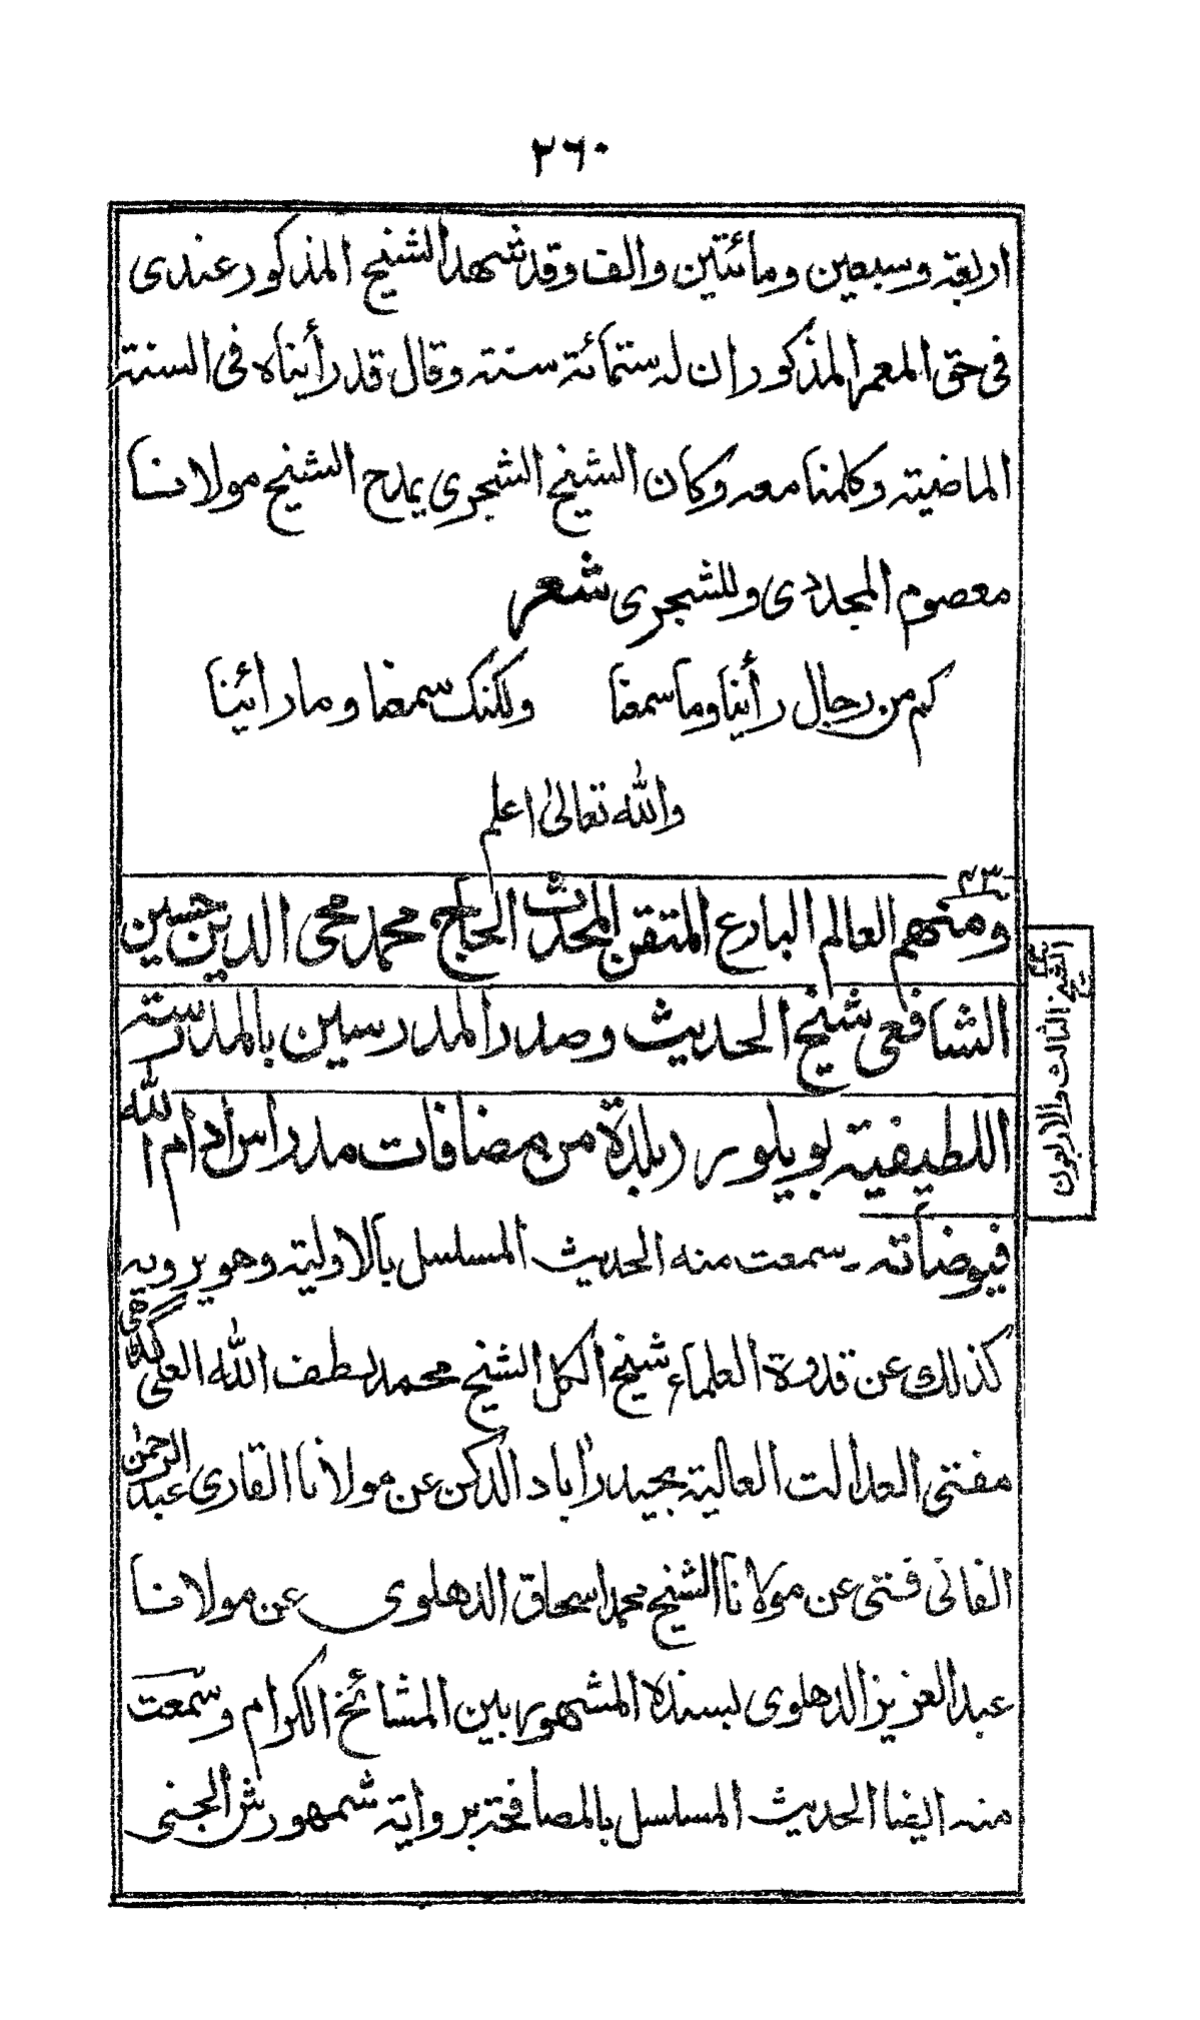 ٢٦٠
اربعة وسبعين ومائتين والف وقد شهد الشيخ المذكور عندى
فى حق المعمر المذكور ان له ستمائة سنة وقال قد رأيناه فى السنة
الماضية وكلمنا معه وكان الشيخ الشجرى يمدح الشيخ مولانا
معصوم المجددى وللشجرى شعر
كم من رجال رأينا وما سمعنا ولكنك سمعنا وما رائينا
والله تعالىٰ اعلم
٤٣
ومنهم العالم البارع المتقن المحدث الحاج محمد محى الدين حسين
الشافعى شيخ الحديث وصدر المدرسين بالمدرسة
اللطيفية بويلور (بلدة من مضافات مدراس ادام الله
فيوضاته ـ سمعت منه الحديث المسلسل بالاولية وهو يرويه
كذلك عن قدوة العلماء شيخ الكل الشيخ محمد لطف الله العلى گڈهى
مفتى العدالت العالية بحيدرآباد الدكن عن مولانا القارى عبد الرحمٰن
الفانى فتى عن مولانا الشيخ محمد اسحاق الدهلوى عن مولانا
عبد العزيز الدهلوى بسنده المشهور بين المشائخ الكرام وسمعت
منه ايضا الحديث المسلسل بالمصافحة برواية شمهورش الجنى
الشيخ الثالث والاربعون